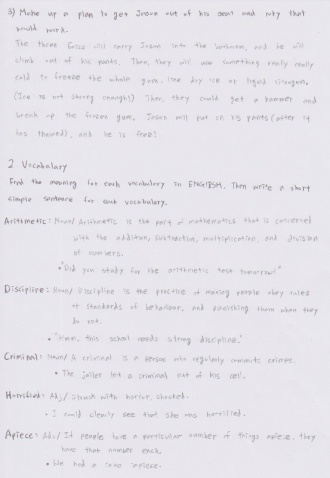 3) Make up a plan to get Jason out of his seat and why that
would work.
The three Erics will carry Jason into the bathroom, and he will
climb out of his pants. Then, they will use something really really
cold to freeze the whole gum, like dry ice or liquid nitrogen.
(Ice is not strong enough) Then, they could get a hammer and
break up the frozen gum. Jason will put on his pants (after it
has thawed), and he is free!
2 Vocabulary
Find the meaning for each vocabulary in ENGLISH. Then write a short
simple sentence for each vocabulary.
Arithmetic: Noun/ Arithmetic is the part of mathematics that is concerned
with the addition, subtraction, multiplication, and division
of numbers.
• "Did you study for the arithmetic test tomorrow?"
Discipline: Noun/ Discipline is the practice of making people obey rules
or standards of behaviour, and punishing them when they
do not.
• "Hmm, this school needs strong discipline."
Criminal: Noun/ A criminal is a person who regularly commits crimes.
• The jailer let a criminal out of his cell.
Horrified: Adj/ Struck with horror, shocked.
• I could clearly see that she was horrified.
Apiece: Adv/ If people have a particular number of things apiece, they
have that number each.
• We had a apiece.